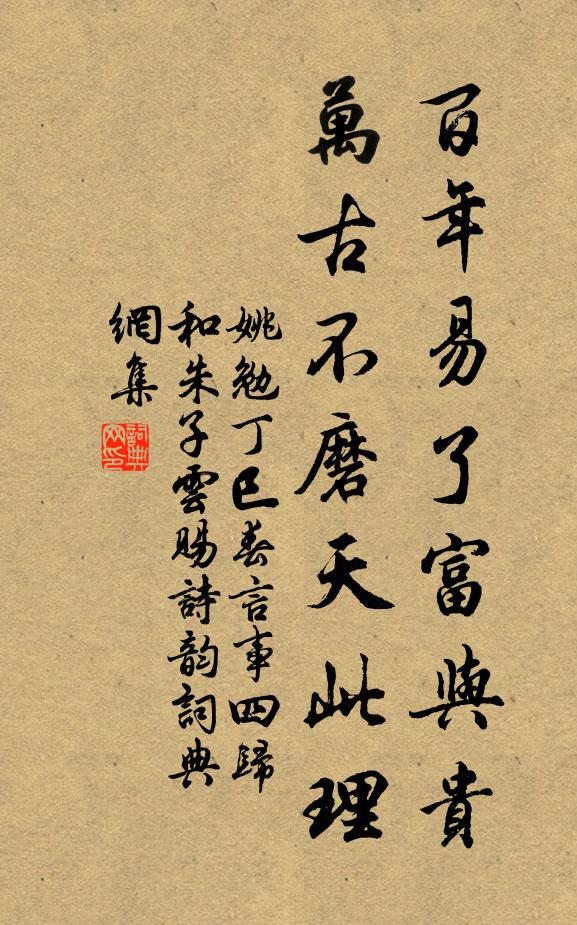 百年易了富與貴
萬古不磨天此理
姚勉丁巳春言事四歸
和朱子雲賜詩韵詞典
網集
詞典
网印